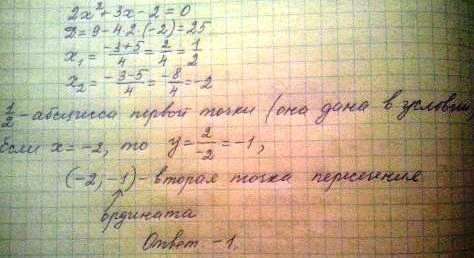 2x² + 3x - 2 = 0
D = 9 - 4·2·(-2) = 25
x₁ = (-3+5)/4 = 2/4 = 1/2
x₂ = (-3-5)/4 = -8/4 = -2
1/2 - абсцисса первой точки (она дана в условии)
если x = -2, то y = 2/-2 = -1,
(-2; -1) - вторая точка пересечения
ордината
Ответ -1.